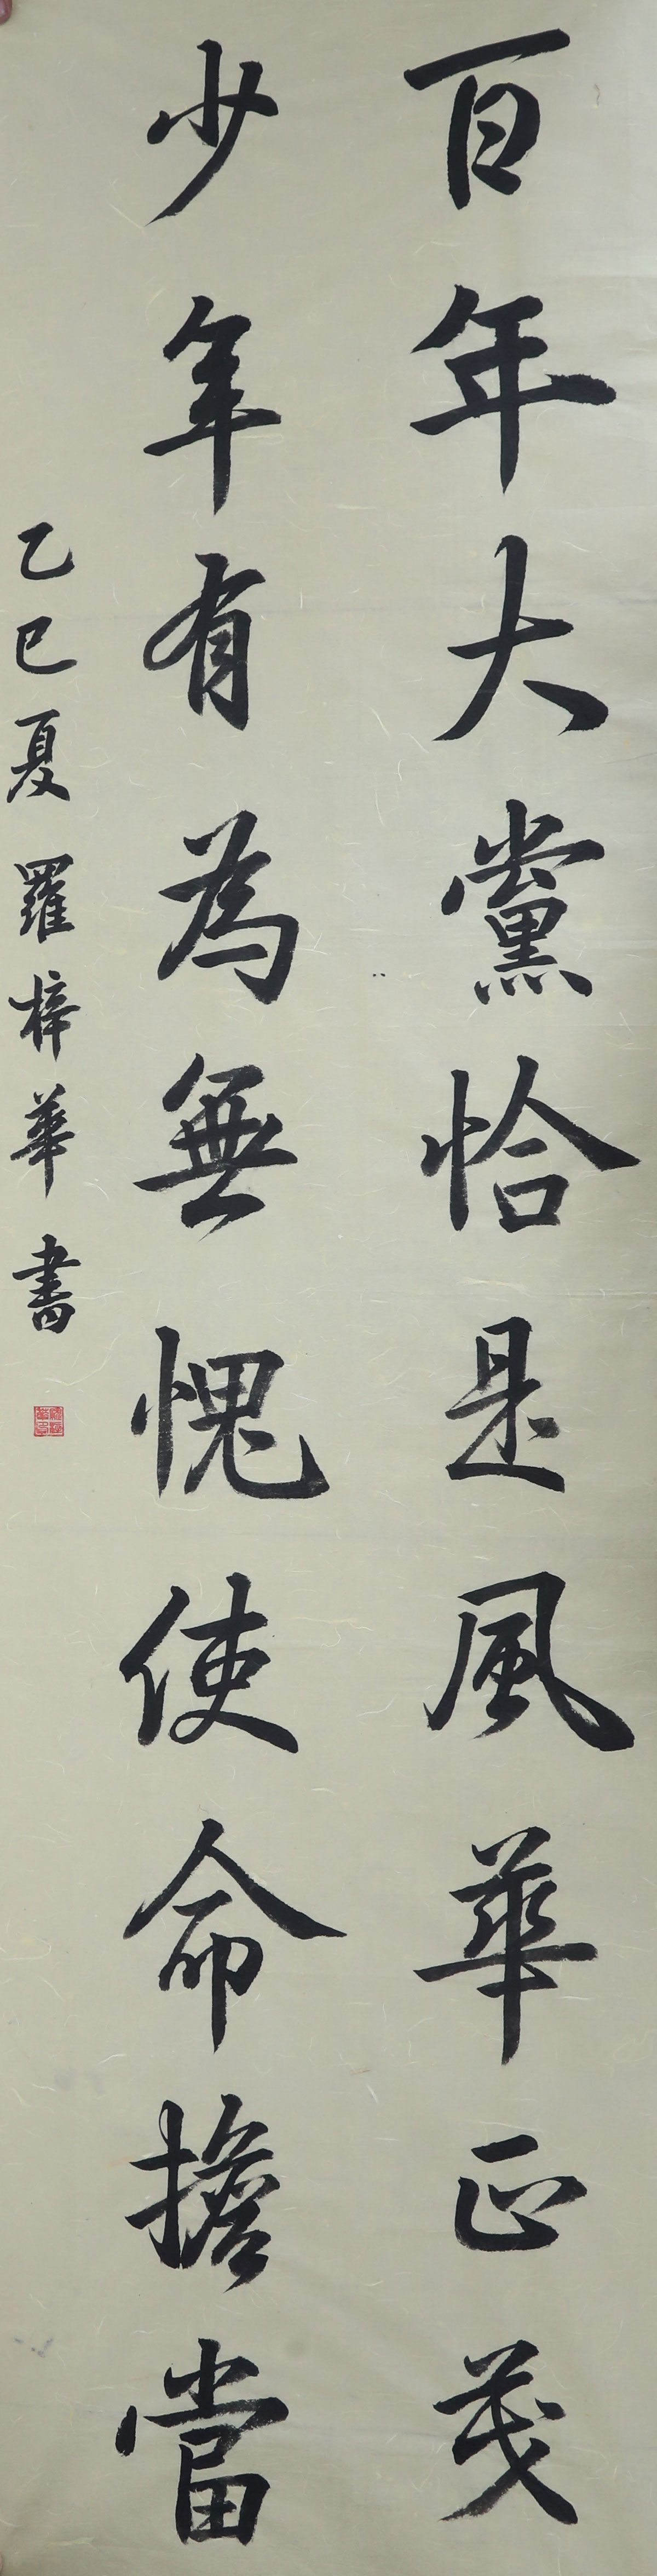 百年大黨恰是風華正茂
少年有為無愧使命擔當
乙巳夏羅梓華書